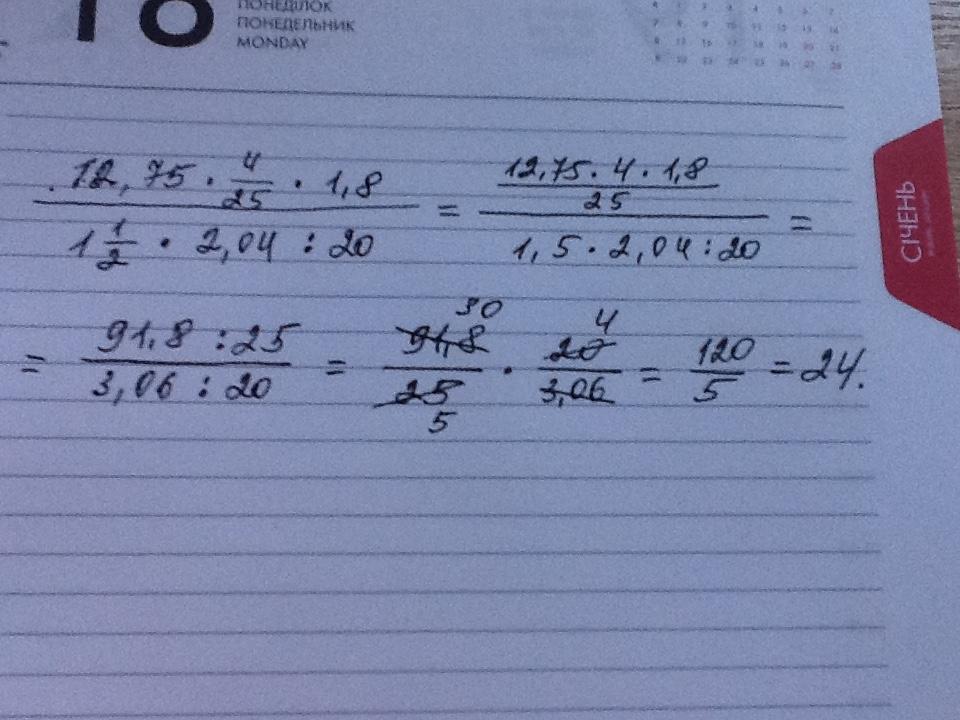 18
ПОНЕДІЛОК
ПОНЕДЕЛЬНИК
MONDAY
СІЧЕНЬ
12,75 · 4/25 · 1,8 / 1 1/2 · 2,04 : 20 = 12,75 · 4 · 1,8 / 25 / 1,5 · 2,04 : 20 =
= 91,8 : 25 / 3,06 : 20 = 91,8 30 / 25 5 · 20 4 / 3,06 = 120/5 = 24.